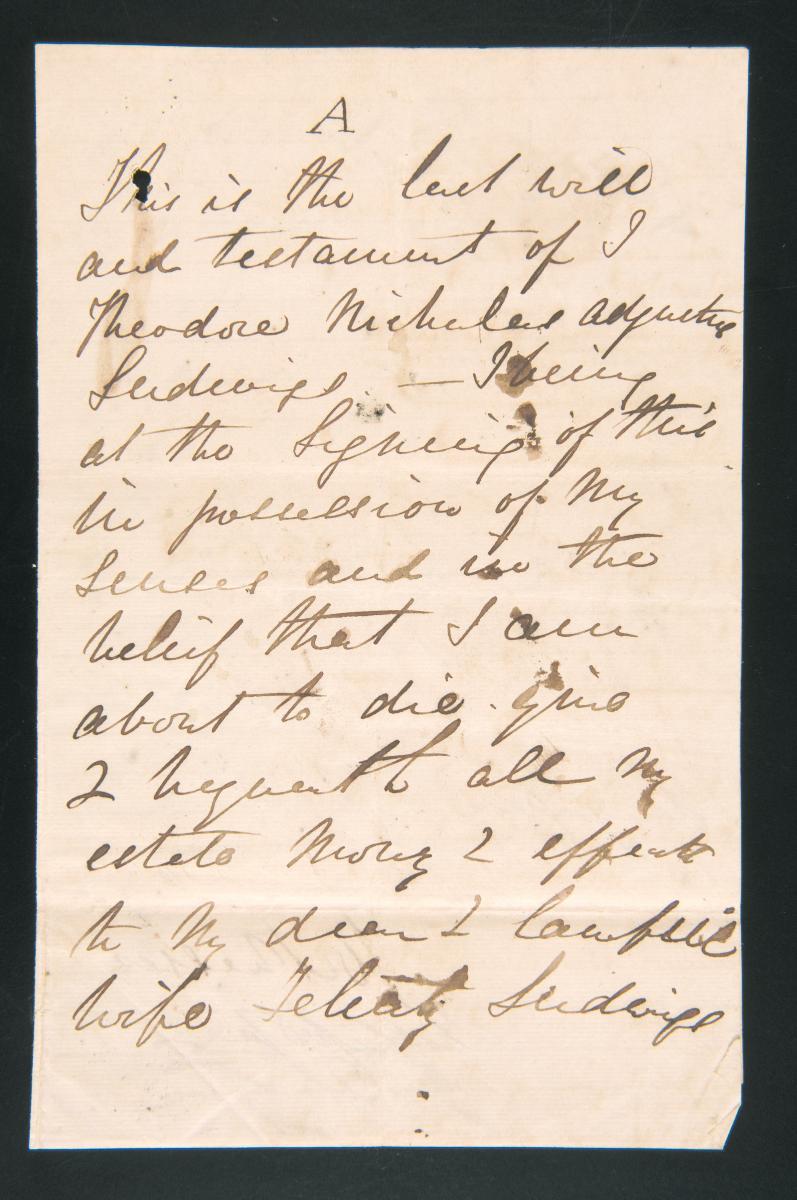 A
This is the last will
and testament of I
Theodore Nicholas
Ludwigs — I being
at the Signing of this
in possession of My
senses and in the
belief that I am
about to die. give
& bequeath all my
estate Money & effects
to My dear & lawful
wife Felicity Ludwigs